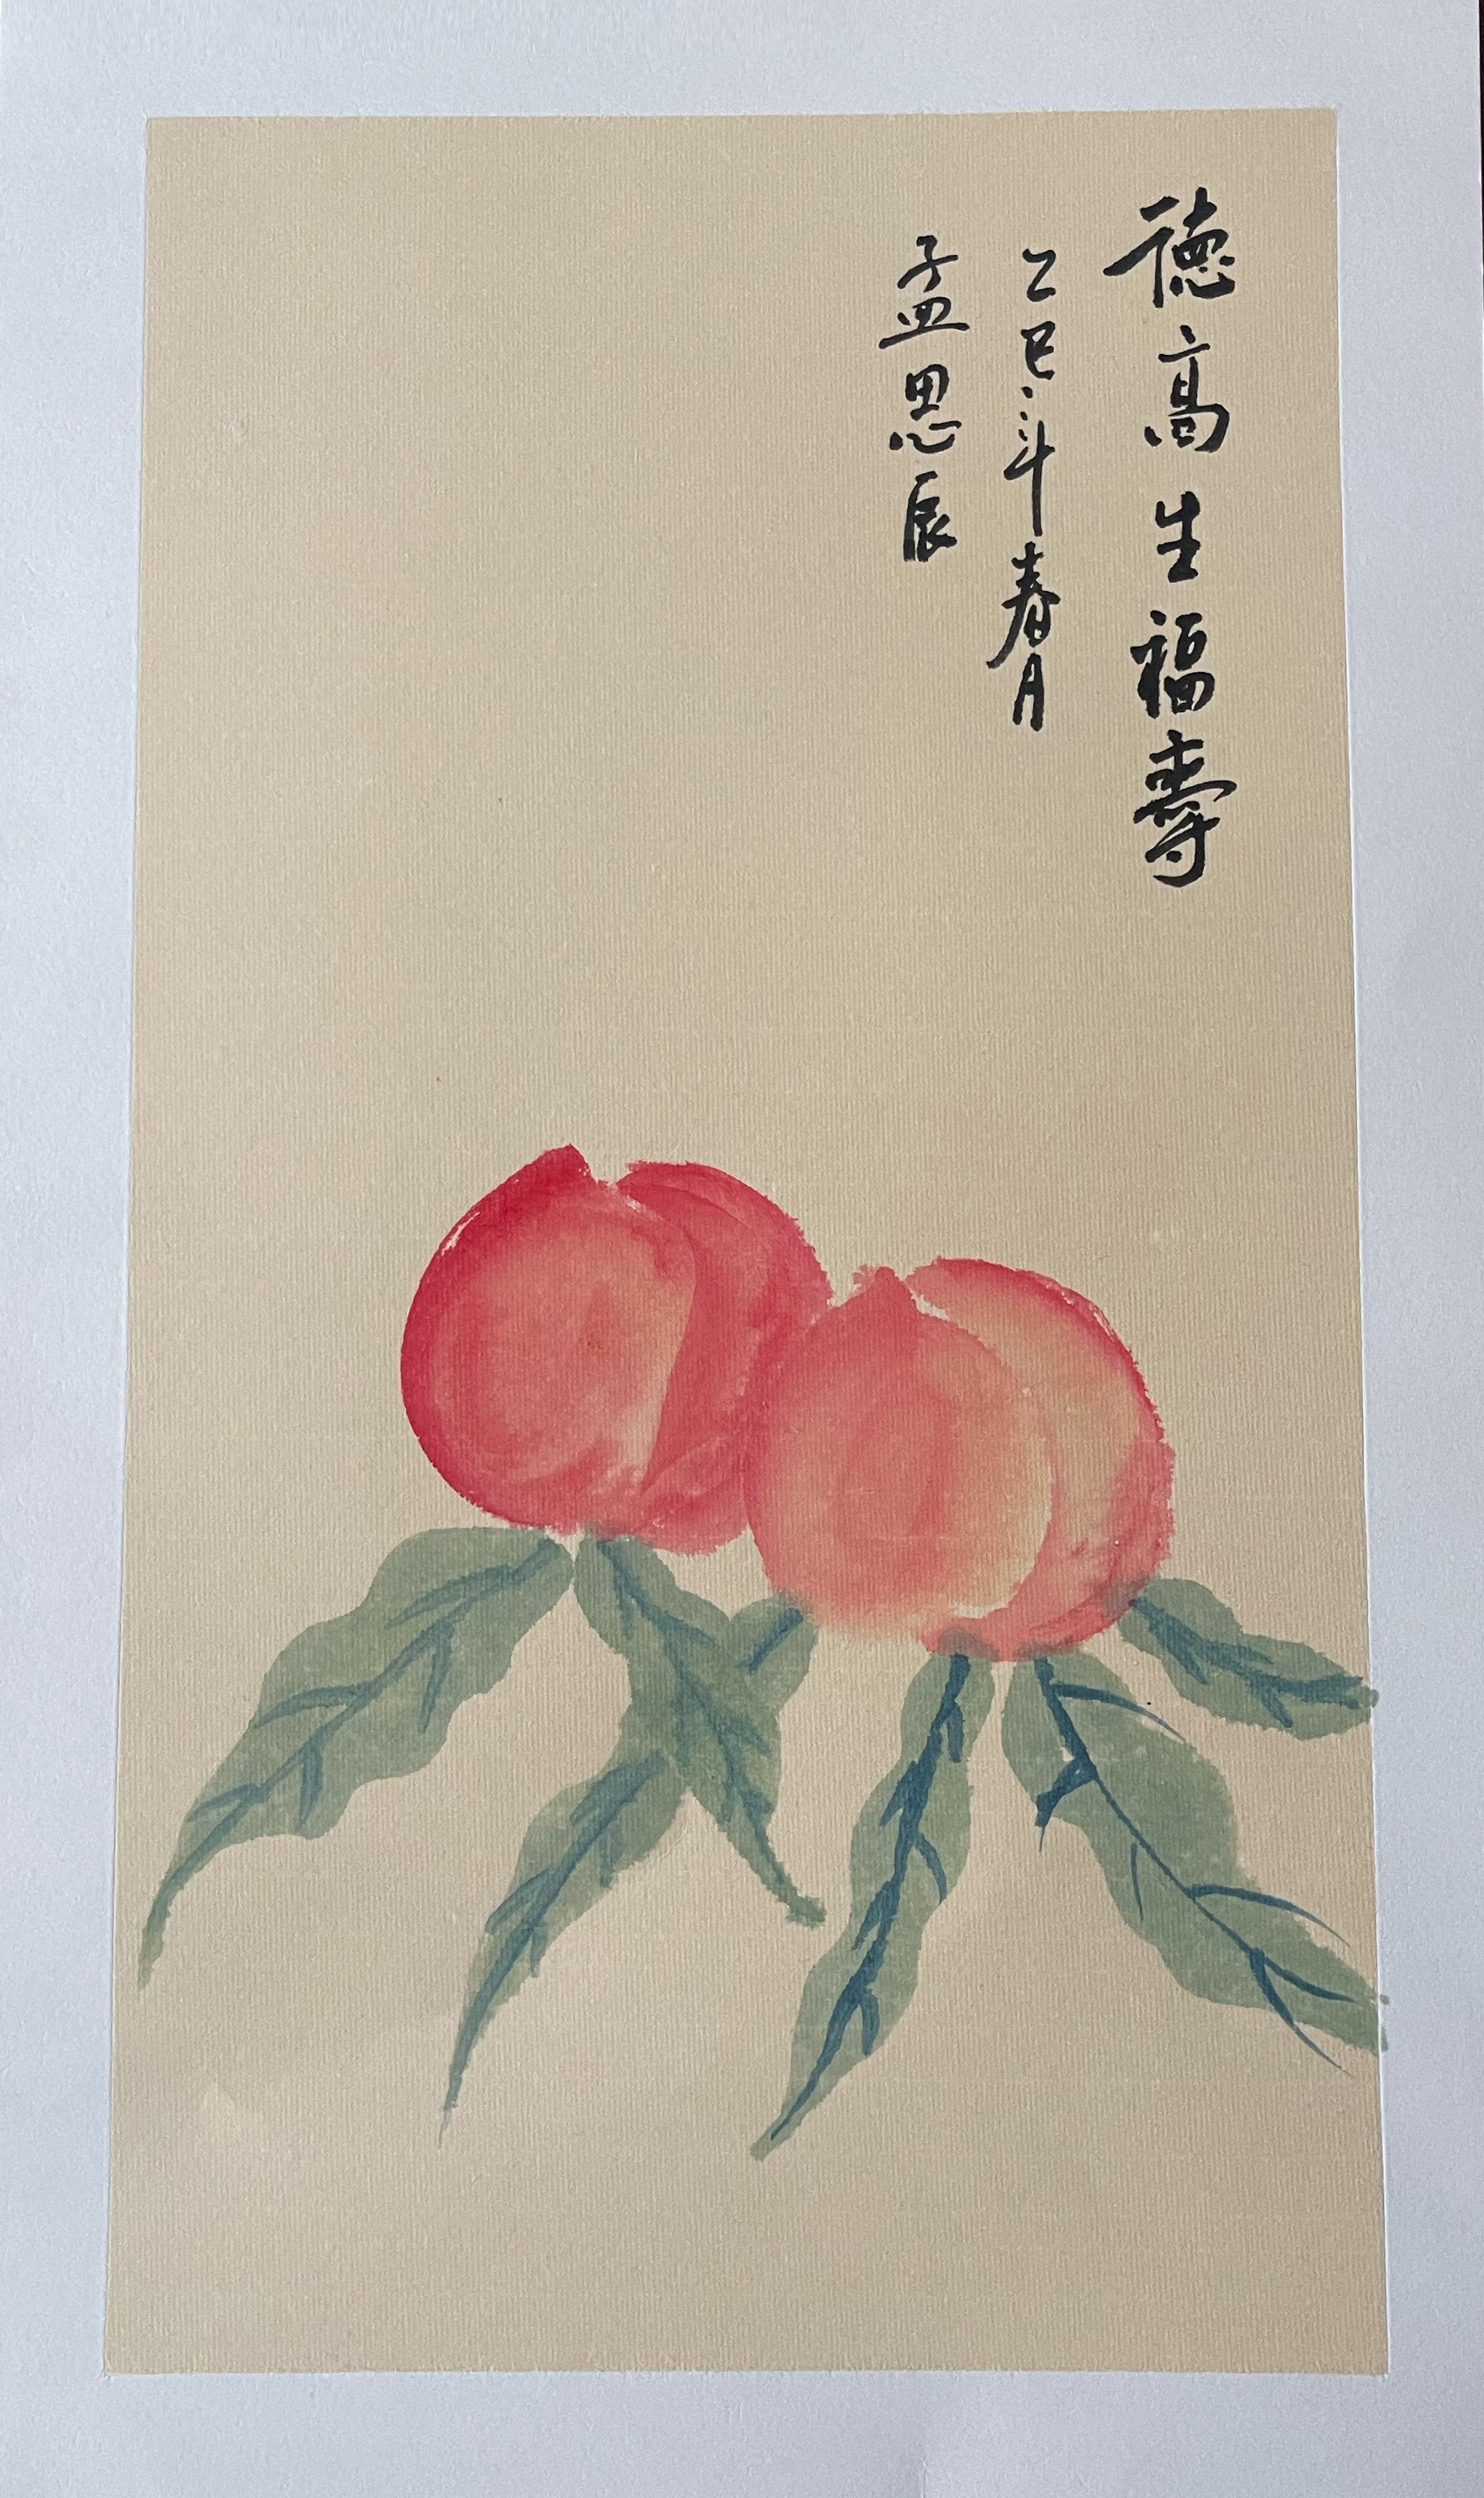 德高生福壽
乙巳年春月
孟思辰